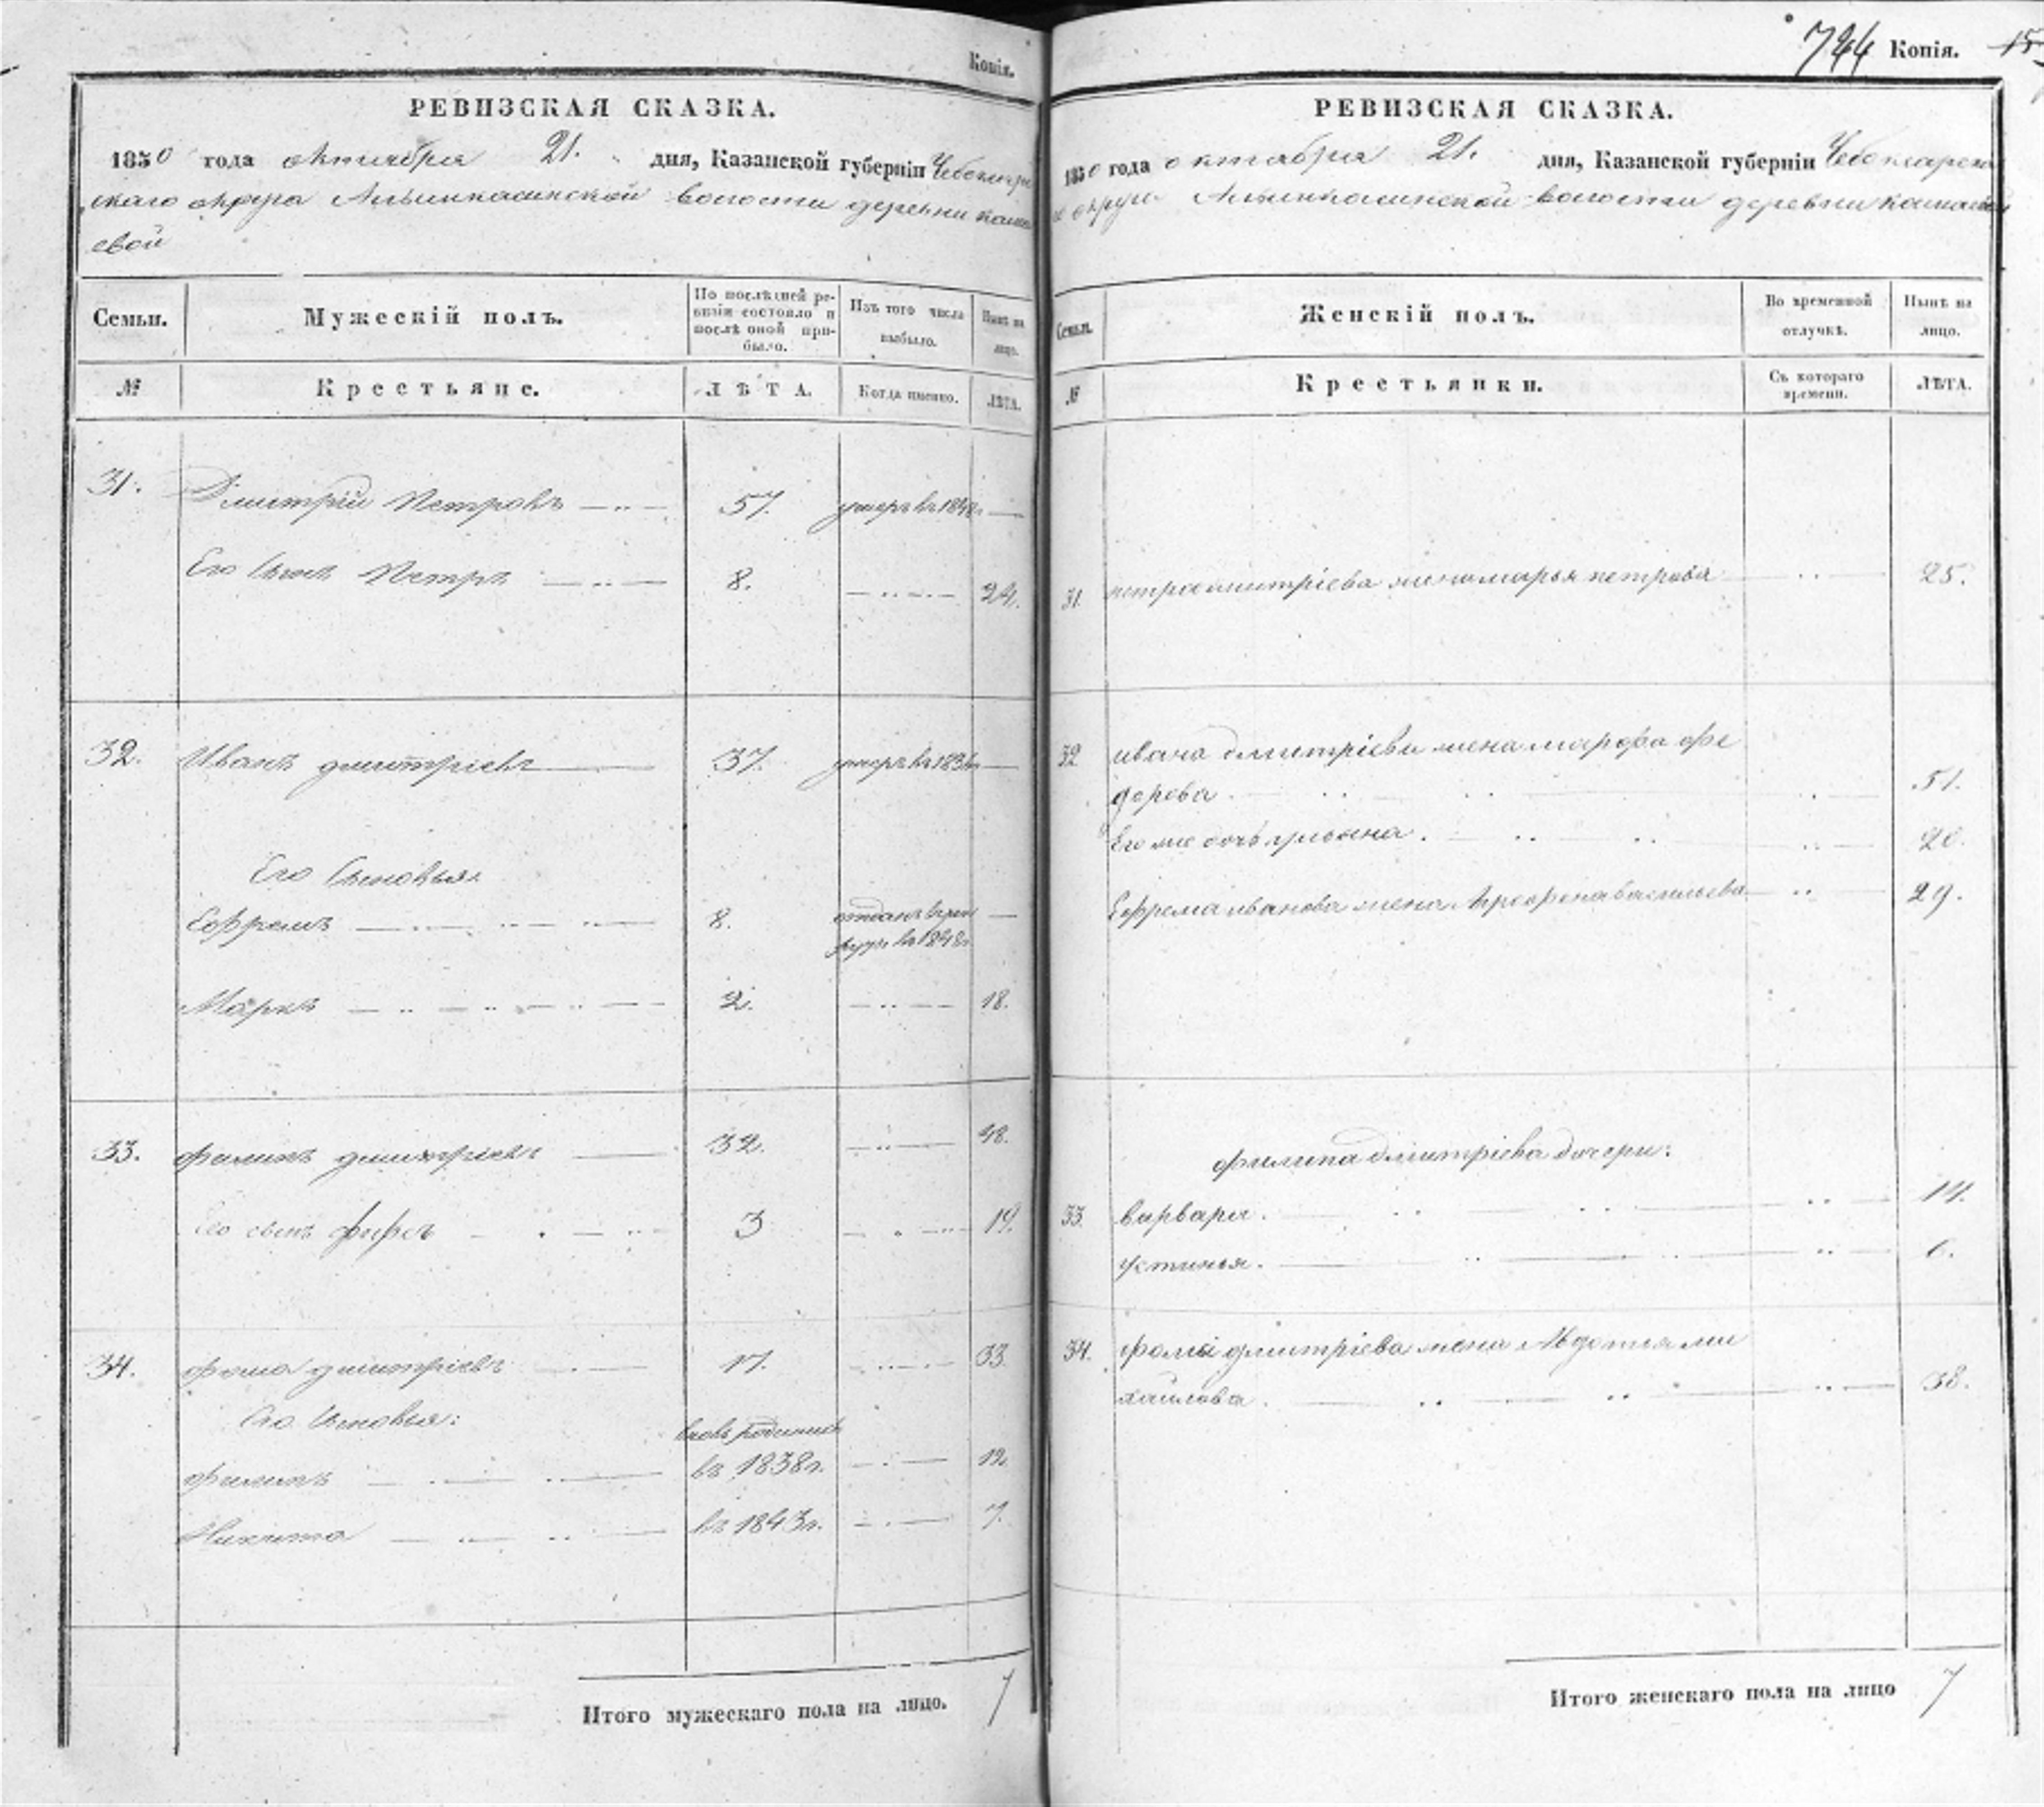 Копія.
РЕВИЗСКАЯ СКАЗКА.
1850 года октября 21. дня, Казанской губерніи Чебоксар
скаго округа Алымкасинской волости деревни
евой
Семьи.
Мужескій полъ.
По послѣдней ре-
визіи состояло и
послѣ оной при-
было.
Изъ того числа
выбыло.
Нынѣ на
лицо.
№
Крестьяне.
ЛѢТА.
Когда именно.
ЛѢТА.
31. Дмитрій Петровъ 57. умеръ въ 1848г
Его Сынъ Петръ 8. 24.
32. Иванъ дмитріевъ 37. умеръ въ
Его Сыновья:
Ефремъ 8. отданъ врек
руты въ 1848г
Маркъ 2. 18.
33. филипъ дмитріевъ 32. 48.
Его сынъ 3 19.
34. фома дмитріевъ 17. 33.
Его Сыновья: вновь родились
филипъ въ 1838г. 12.
Никита въ 1843г. 7.
Итого мужескаго пола на лицо. 7
744 Копія.
РЕВИЗСКАЯ СКАЗКА.
1850 года октября 21. дня, Казанской губерніи Чебоксарска
го округа Алымкасинской волости деревни
Семьи.
Женскій полъ.
Во временной
отлучкѣ.
Нынѣ на
лицо.
№
Крестьянки.
Съ котораго
времени.
ЛѢТА.
31. петра дмитріева жена марья петрова 25.
32 ивана дмитріева жена марфа фе
дорова. 51.
Его же дочь ульяна. 20.
Ефрема иванова жена Агрофена васильева 29.
филипа дмитріева дочери:
33. варвара. 14.
устинья. 6.
34. фомы дмитріева жена Авдотья ми
хайлова. 38.
Итого женскаго пола на лицо 7